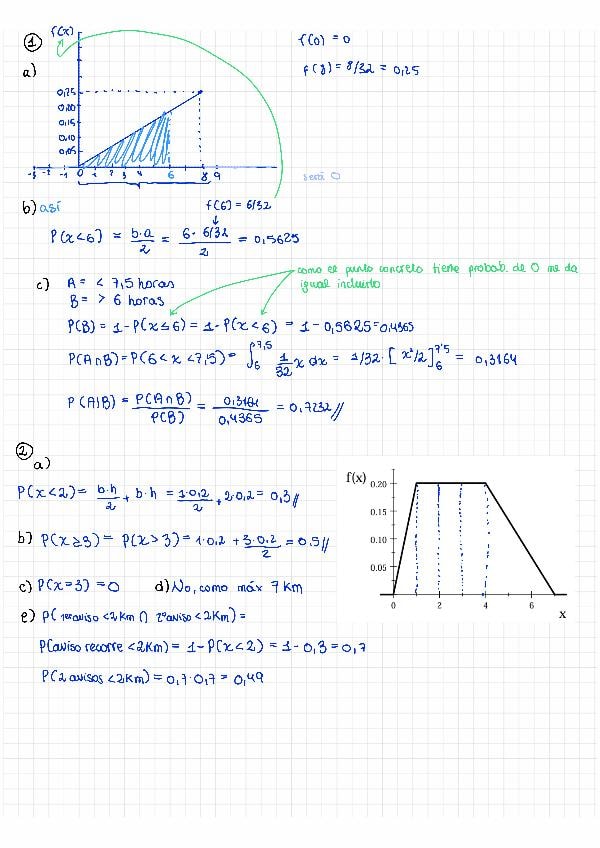 ① f(x)
f(0) = 0
a)
f(8) = 8/32 = 0,25
0,25
0,20
0,15
0,10
0,05
-3 -2 -1 0 1 2 3 4 6 8 9
será 0
b) así
f(6) = 6/32
P(x<6) = b·a/2 = 6·6/32/2 = 0,5625
como el punto concreto tiene probab. de 0 me da
igual incluirlo
c) A = < 7,5 horas
B = > 6 horas
P(B) = 1 - P(x≤6) = 1 - P(x<6) = 1 - 0,5625 = 0,4365
P(A∩B) = P(6<x<7,5) = ∫₆^7,5 1/32 x dx = 1/32 · [x²/2]₆^7,5 = 0,3164
P(A|B) = P(A∩B)/P(B) = 0,3164/0,4365 = 0,7232//
②
a)
P(x<2) = b·h/2 + b·h = 1·0,2/2 + 2·0,2 = 0,3//
b) P(x≥3) = P(x>3) = 1·0,2 + 3·0,2/2 = 0.5//
c) P(x=3) = 0 d) No, como máx 7 Km
e) P(1er aviso <2Km ∩ 2º aviso <2Km) =
P(aviso recorre <2Km) = 1 - P(x<2) = 1 - 0,3 = 0,7
P(2 avisos <2Km) = 0,7·0,7 = 0,49
f(x)
0.20
0.15
0.10
0.05
0 2 4 6
x